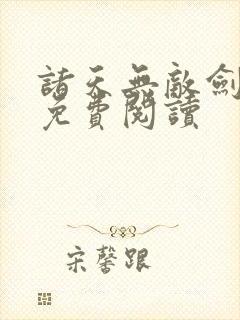 諸天無敵劍
免費閱讀
宋馨跟